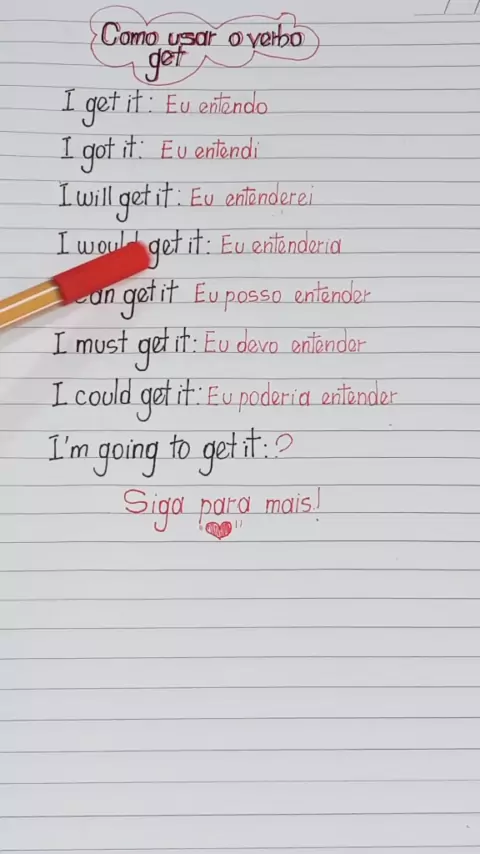 Como usar o verbo
get
I get it: Eu entendo
I got it: Eu entendi
I will get it: Eu entenderei
I would get it: Eu entenderia
can get it Eu posso entender
I must get it: Eu devo entender
I could get it: Eu poderia entender
I'm going to get it: ?
Siga para mais!